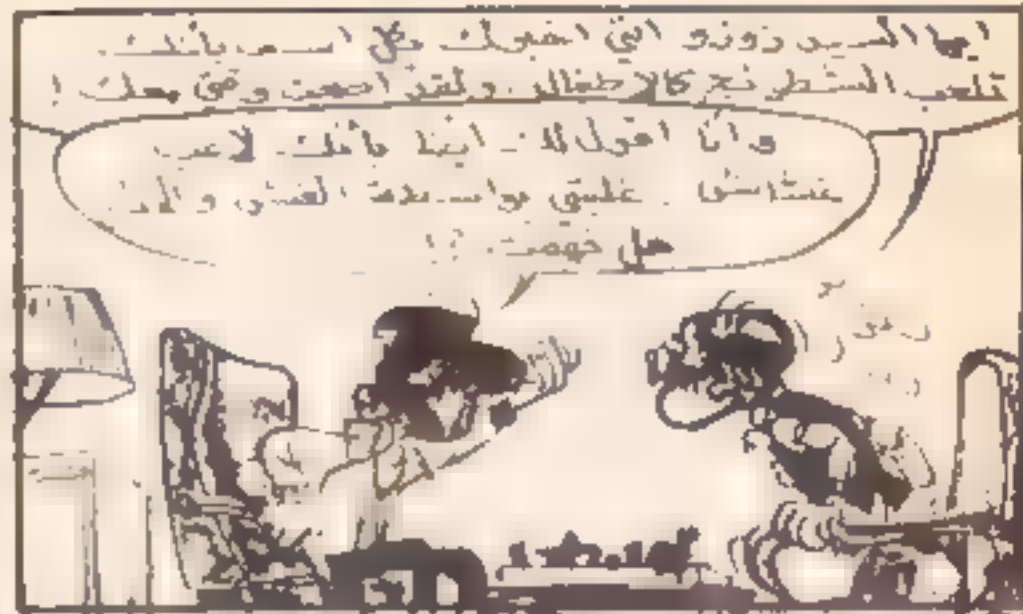 ايها السيد زوزو اني اخبرك بكل اسـف بأنك
تلعب الشطرنج كالاطفال ولقد اضعت وقتي معك !
وانا اقول لك ايضا بأنك لاعب
غشاش بواسطة الغش والـ
هل فهمت ؟!